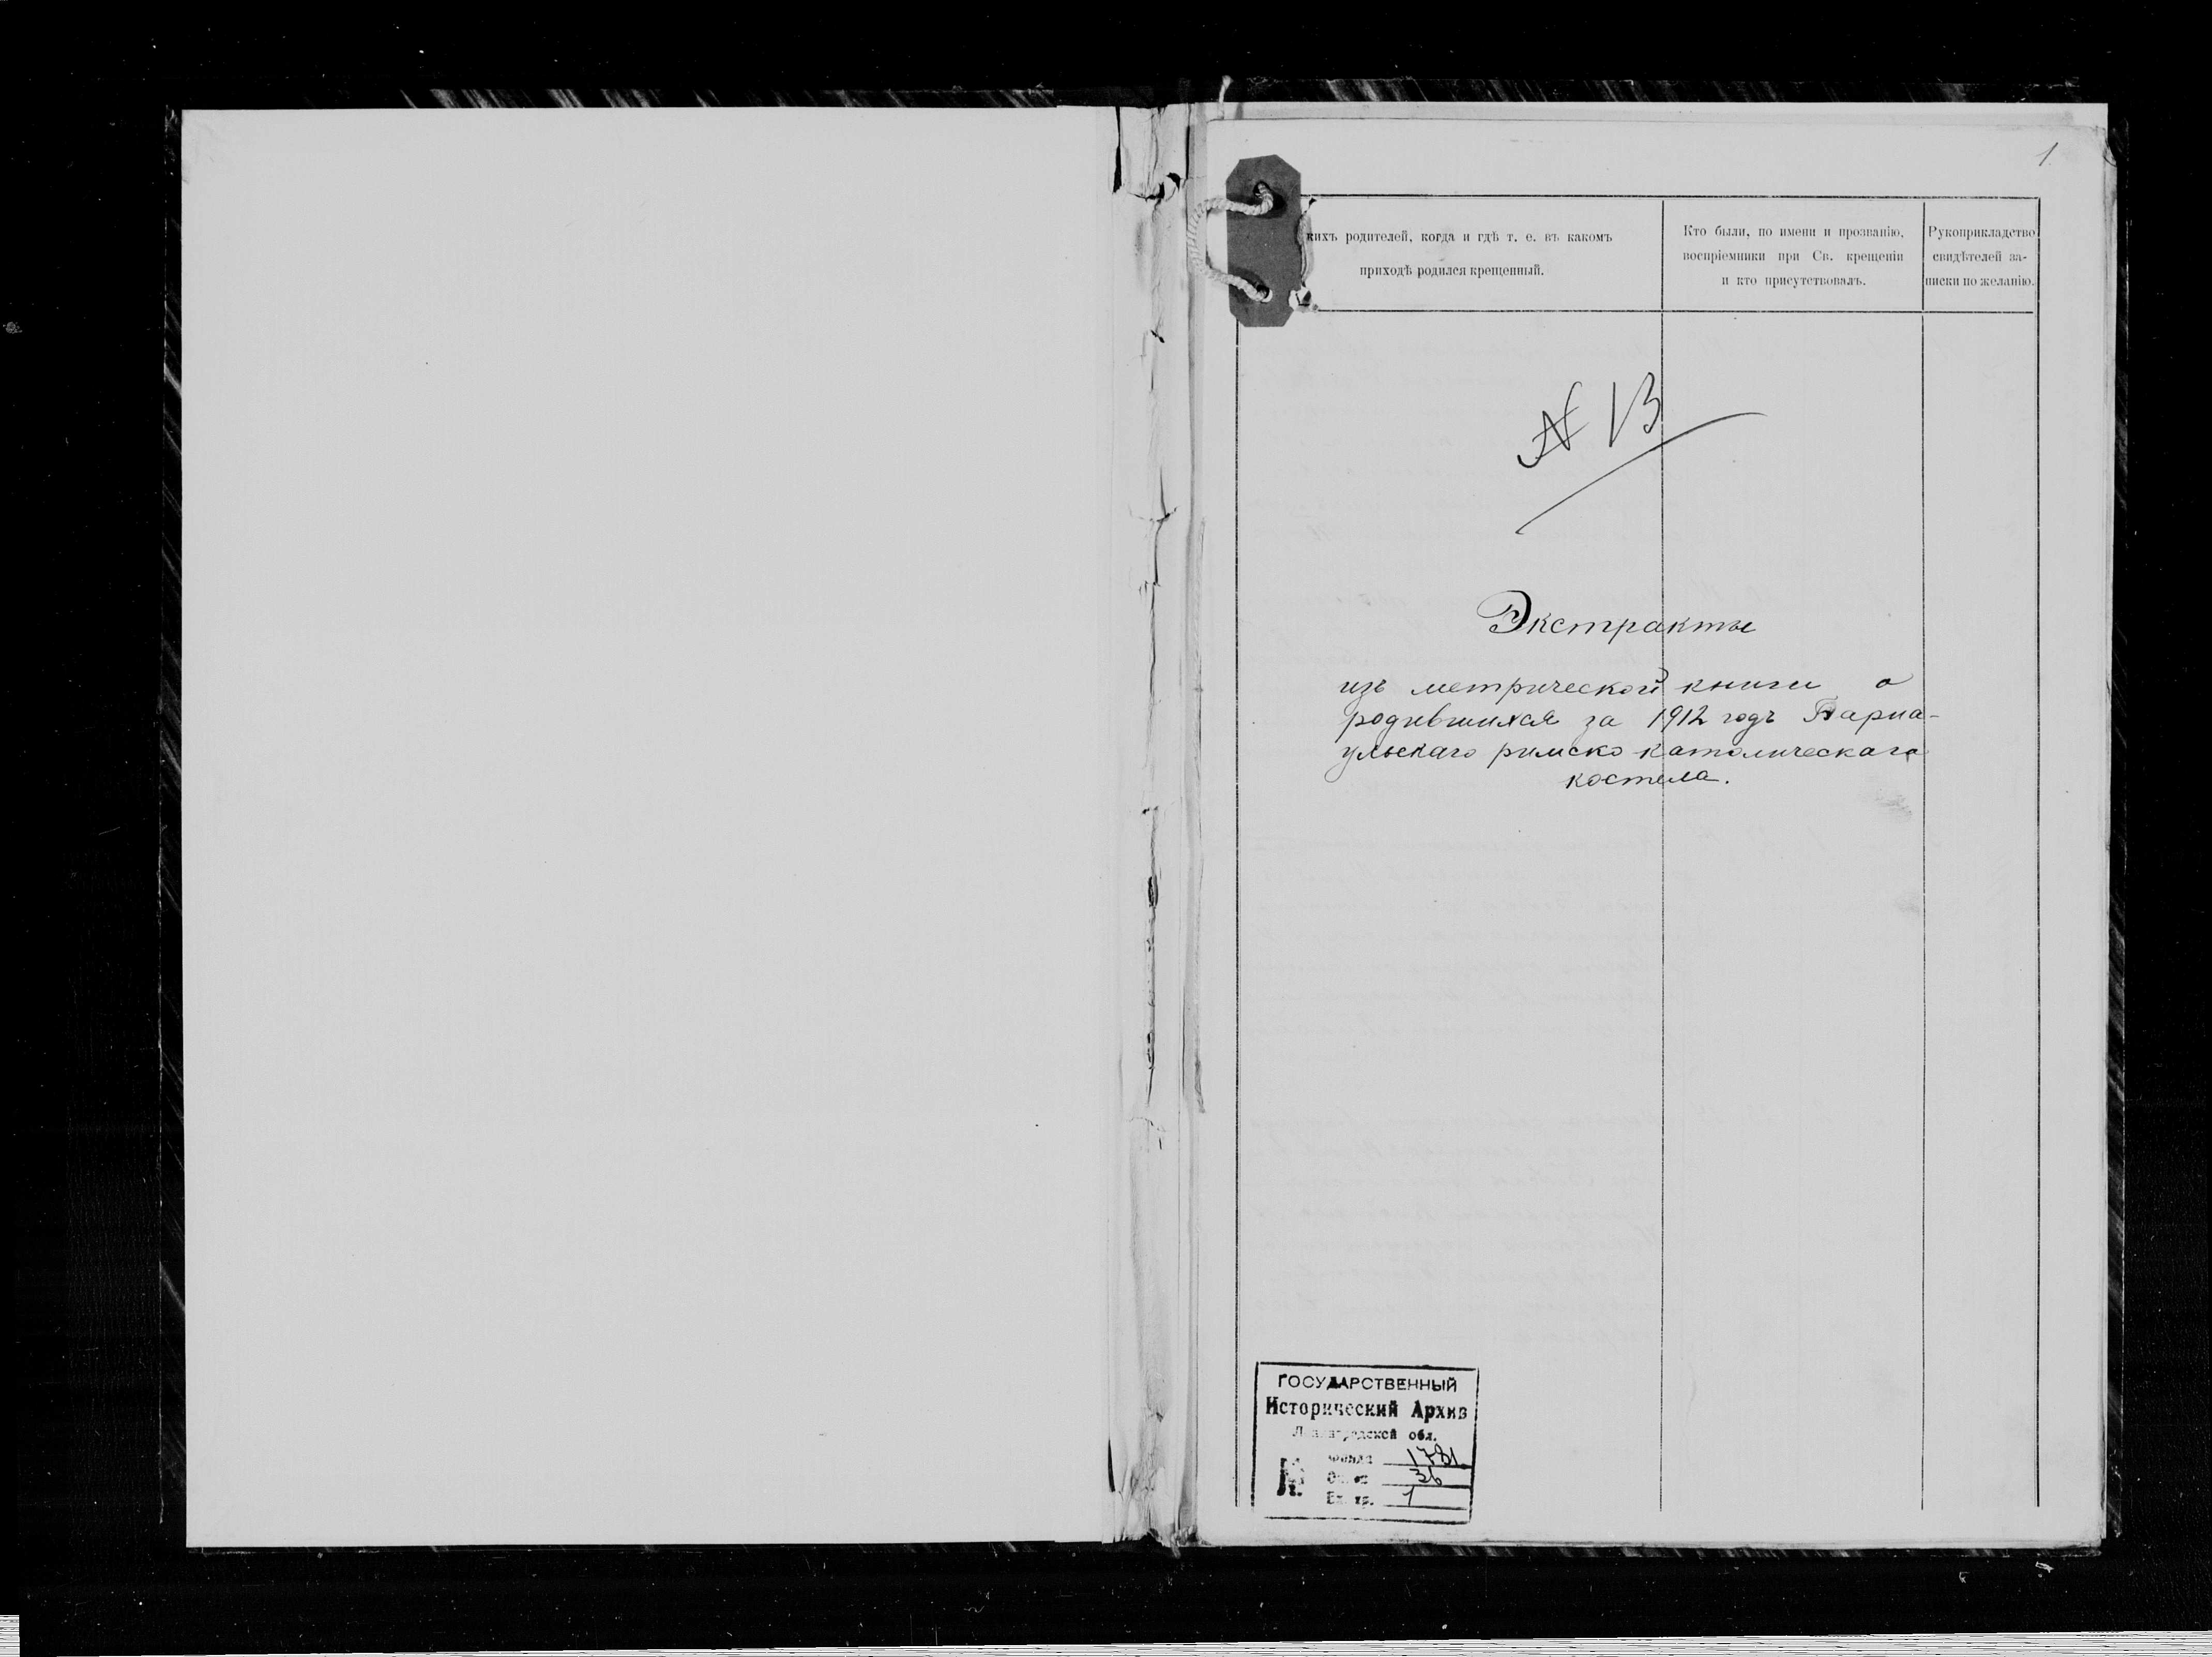 1
кихъ родителей, когда и гдѣ т. е. въ какомъ
приходѣ родился крещенный.
Кто были, по имени и прозванію,
воспріемники при Св. крещеніи
и кто присутствовалъ.
Рукоприкладство
свидѣтелей за-
писки по желанію.
N 13
Экстракты
изъ метрической книги о
родившихся за 1912 годъ Барна-
ульскаго римско католическаго
костела.
ГОСУДАРСТВЕННЫЙ
Исторический Архив
Ленинградской обл.
Фонд 1781
Опись 36
Ед. хр. 1